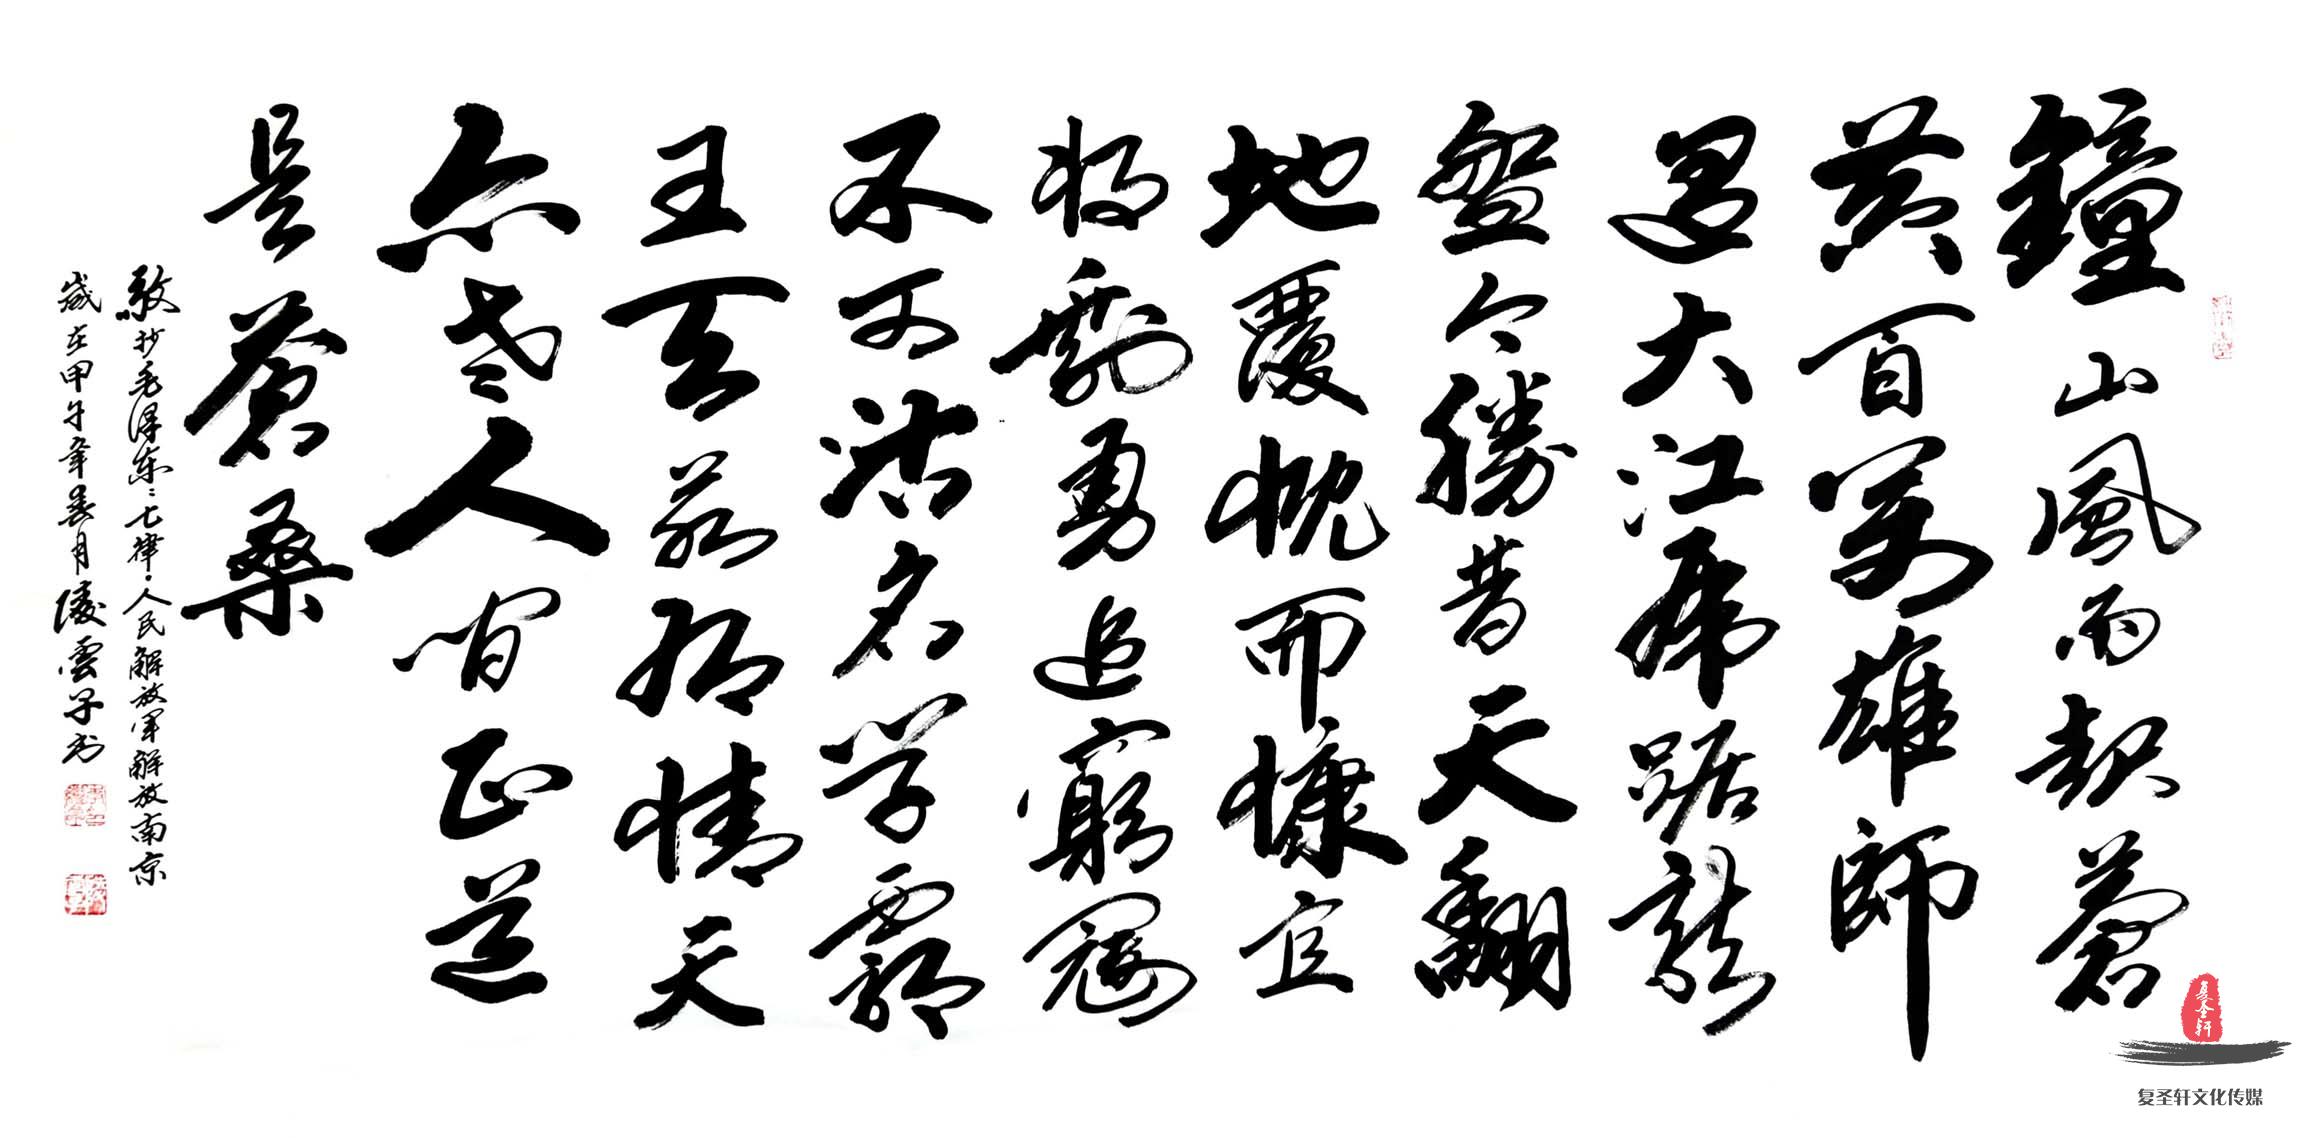 鐘山風雨起蒼
黄百萬雄師
過大江虎踞龍
盤今勝昔天翻
地覆慨而慷宜
将剩勇追窮寇
不可沽名学霸
王天若有情天
亦老人间正道
是蒼桑
敬抄毛泽东:七律·人民解放军解放南京
歲在甲午年春月凌雲子书
复圣轩
复圣轩文化传媒